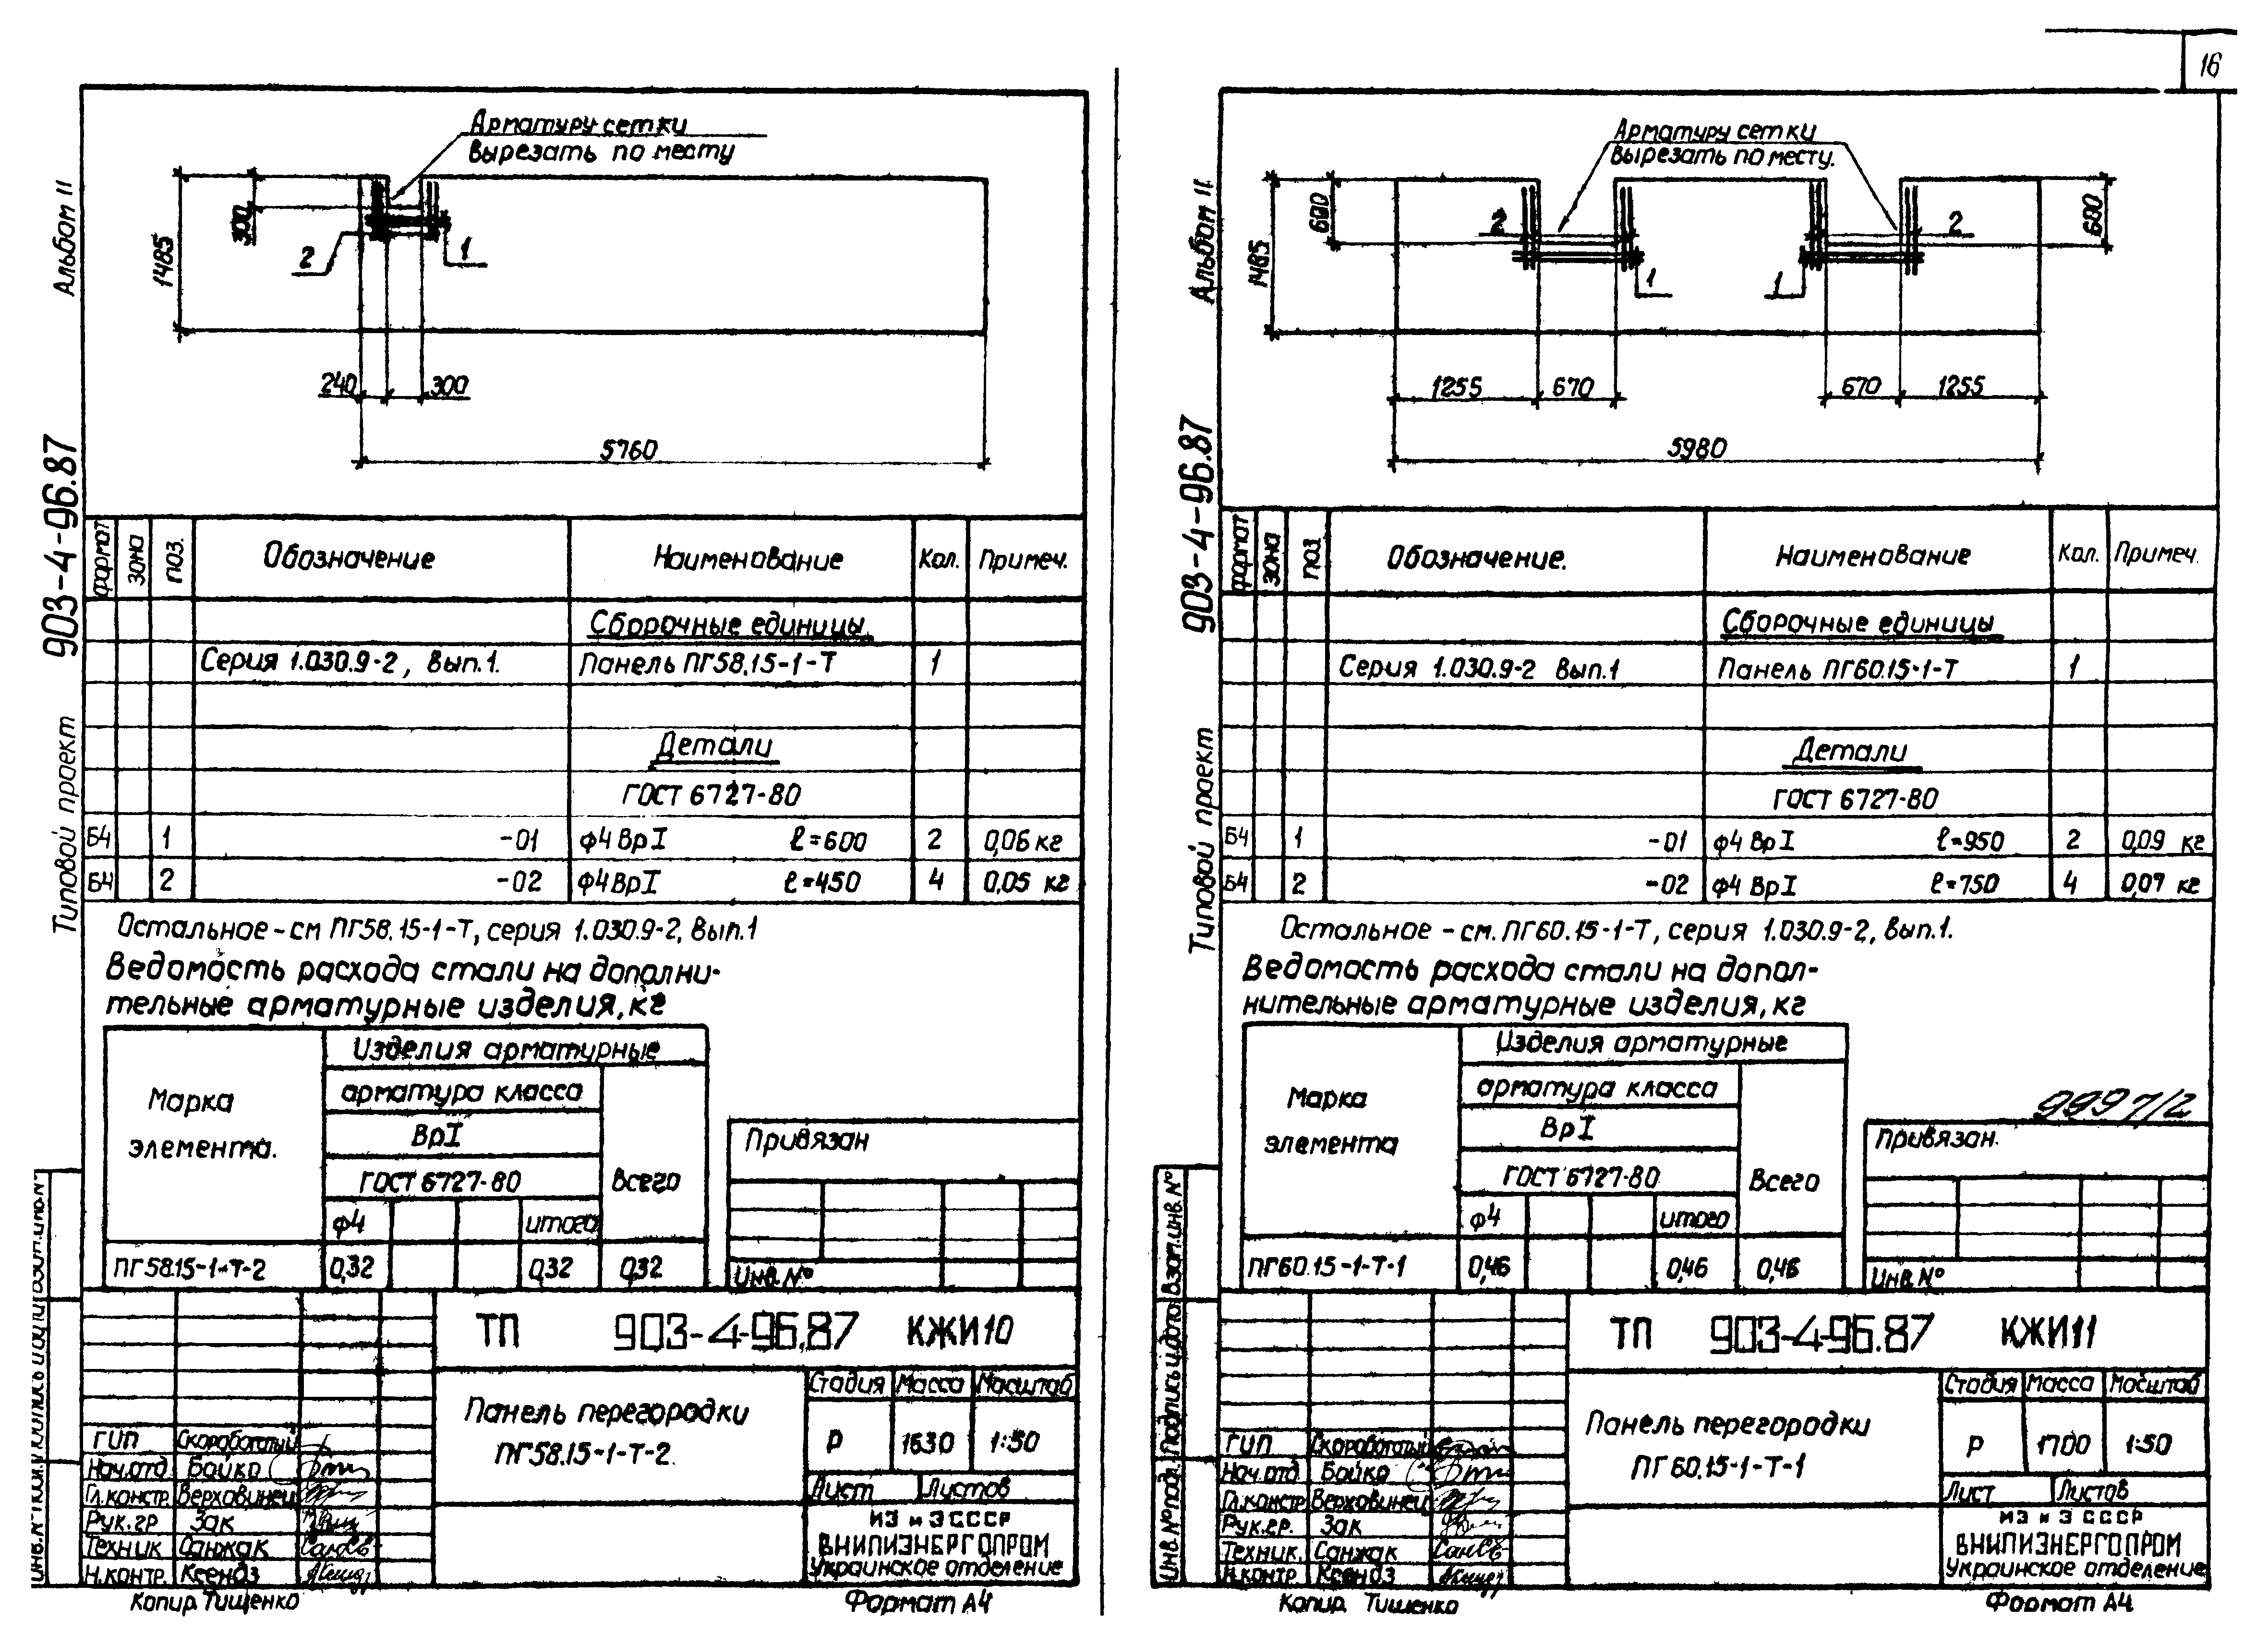 16
Альбом II
903-4-96.87
Типовой проект
Арматуру сетки
вырезать по месту
300
1485
2
1
240
300
5760
формат
зона
поз.
Обозначение
Наименование
Кол.
Примеч.
Сборочные единицы
Серия 1.030.9-2, Вып.1.
Панель ПГ58.15-1-Т
1
Детали
ГОСТ 6727-80
Б4 1 -01 ф4 ВрI ℓ=600 2 0,06 кг
Б4 2 -02 ф4 ВрI ℓ=450 4 0,05 кг
Остальное - см ПГ58.15-1-Т, серия 1.030.9-2, Вып.1
Ведомость расхода стали на дополни-
тельные арматурные изделия, кг
Марка
элемента.
Изделия арматурные
арматура класса
ВрI
ГОСТ 6727-80
Всего
ф4
итого
ПГ58.15-1-Т-2 0,32 0,32 0,32
Привязан
Инв. №
ТП 903-4-96.87 КЖИ10
Панель перегородки
ПГ58.15-1-Т-2.
Стадия Масса Масштаб
Р 1630 1:50
Лист Листов
МЭ и Э СССР
ВНИПИЭНЕРГОПРОМ
Украинское отделение
ГИП Скоробогатый
Нач.отд Бойко
Гл.констр. Верховинец
Рук.гр Зак
Техник Санжак
Н.контр. Ксендз
Копир. Тищенко
Формат А4
Альбом II
903-4-96.87
Типовой проект
Арматуру сетки
вырезать по месту.
600
1485
2
2
600
1
1
1255
670
670
1255
5980
формат
зона
поз
Обозначение.
Наименование
Кол.
Примеч.
Сборочные единицы
Серия 1.030.9-2 Вып.1
Панель ПГ60.15-1-Т
1
Детали
ГОСТ 6727-80
Б4 1 -01 ф4 ВрI ℓ=950 2 0,09 кг
Б4 2 -02 ф4 ВрI ℓ=750 4 0,07 кг
Остальное - см. ПГ60.15-1-Т, серия 1.030.9-2, Вып.1.
Ведомость расхода стали на допол-
нительные арматурные изделия, кг
Марка
элемента
Изделия арматурные
арматура класса
ВрI
ГОСТ 6727-80
Всего
ф4
итого
ПГ60.15-1-Т-1 0,46 0,46 0,46
9997/2
Привязан.
Инв. №
Взам.инв.№
Подпись и дата
Инв.№ подл.
ТП 903-4-96.87 КЖИ11
Панель перегородки
ПГ60.15-1-Т-1
Стадия Масса Масштаб
Р 1700 1:50
Лист Листов
МЭ и Э СССР
ВНИПИЭНЕРГОПРОМ
Украинское отделение
ГИП Скоробогатый
Нач.отд Бойко
Гл.констр Верховинец
Рук.гр. Зак
Техник. Санжак
Н.контр Ксендз
Копир. Тищенко
Формат А4